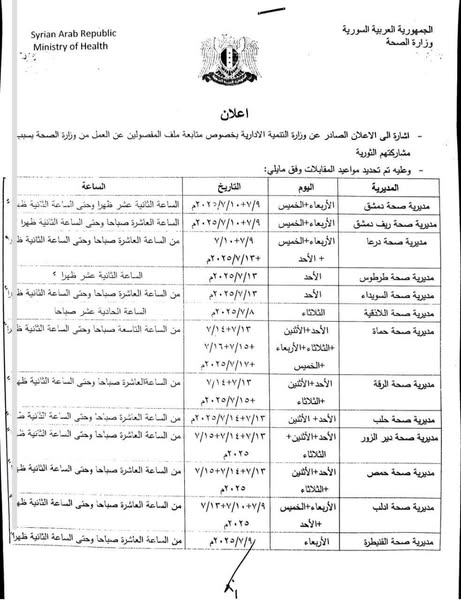 Syrian Arab Republic
Ministry of Health
الجمهورية العربية السورية
وزارة الصحة
اعلان
- اشارة الى الاعلان الصادر عن وزارة التنمية الادارية بخصوص متابعة ملف المفصولين عن العمل من وزارة الصحة بسبب
مشاركتهم الثورية
- وعليه تم تحديد مواعيد المقابلات وفق مايلي:
المديرية اليوم التاريخ الساعة
مديرية صحة دمشق الأربعاء+الخميس ٧/٩+٢٠٢٥/٧/١٠م الساعة الثانية عشر ظهرا وحتى الساعة الثانية ظهرا
مديرية صحة ريف دمشق الأربعاء+الخميس ٧/٩+٢٠٢٥/٧/١٠م الساعة العاشرة صباحا وحتى الساعة الثانية ظهرا
مديرية صحة درعا الأربعاء+الخميس ٧/٩+٧/١٠ من الساعة العاشرة صباحا وحتى الساعة الثانية ظهرا
+ الأحد +٢٠٢٥/٧/١٣م
مديرية صحة طرطوس الأحد ٢٠٢٥/٧/١٣م الساعة الثانية عشر ظهرا
مديرية صحة السويداء الأحد ٢٠٢٥/٧/١٣م من الساعة العاشرة صباحا وحتى الساعة الثانية ظهرا
مديرية صحة اللاذقية الثلاثاء ٢٠٢٥/٧/٨م الساعة الحادية عشر صباحا
مديرية صحة حماة الأحد+الأثنين ٧/١٣+٧/١٤ من الساعة التاسعة صباحا وحتى الساعة الثانية ظهرا
+الثلاثاء+الأربعاء +٧/١٥+٧/١٦
+الخميس +٢٠٢٥/٧/١٧م
مديرية صحة الرقة الأحد+الأثنين ٧/١٣+٧/١٤ من الساعة العاشرة صباحا وحتى الساعة الثانية ظهرا
+الثلاثاء +٢٠٢٥/٧/١٥م
مديرية صحة حلب الأحد+الأثنين ٧/١٣+٢٠٢٥/٧/١٤م من الساعة العاشرة صباحا وحتى الساعة الثانية
مديرية صحة دير الزور الأحد+الأثنين+ ٧/١٣+٧/١٤+٧/١٥ من الساعة العاشرة صباحا وحتى الساعة الثانية ظهرا
الثلاثاء ٢٠٢٥م
مديرية صحة حمص الأحد+الأثنين ٧/١٣+٧/١٤+٧/١٥ من الساعة العاشرة صباحا وحتى الساعة الثانية ظهرا
+الثلاثاء ٢٠٢٥م
مديرية صحة ادلب الأربعاء+الخميس ٧/٩+٧/١٠+٧/١٣ من الساعة العاشرة صباحا وحتى الساعة الثانية ظهرا
+الأحد ٢٠٢٥م
مديرية صحة القنيطرة الأربعاء ٢٠٢٥/٧/٩م من الساعة العاشرة صباحا وحتى الساعة الثانية ظهرا